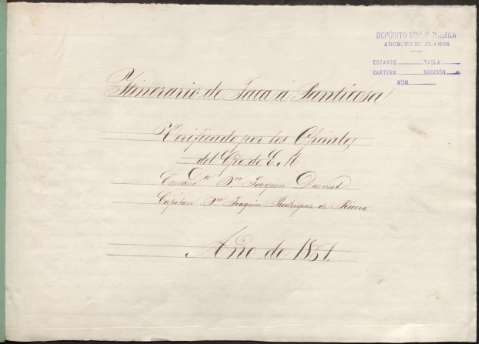 DEPÓSITO DE LA GUERRA
ARCHIVO DE PLANOS
ESTANTE TABLA
CARTERA SECCIÓN
NÚM.
Itinerario de Jaca á Panticosa
Verificado por los Oficiales
del Cpo. de E. M.
Joaquin
Capitan Dn. Joaquin Rodriguez de Rivera
Año de 1851.